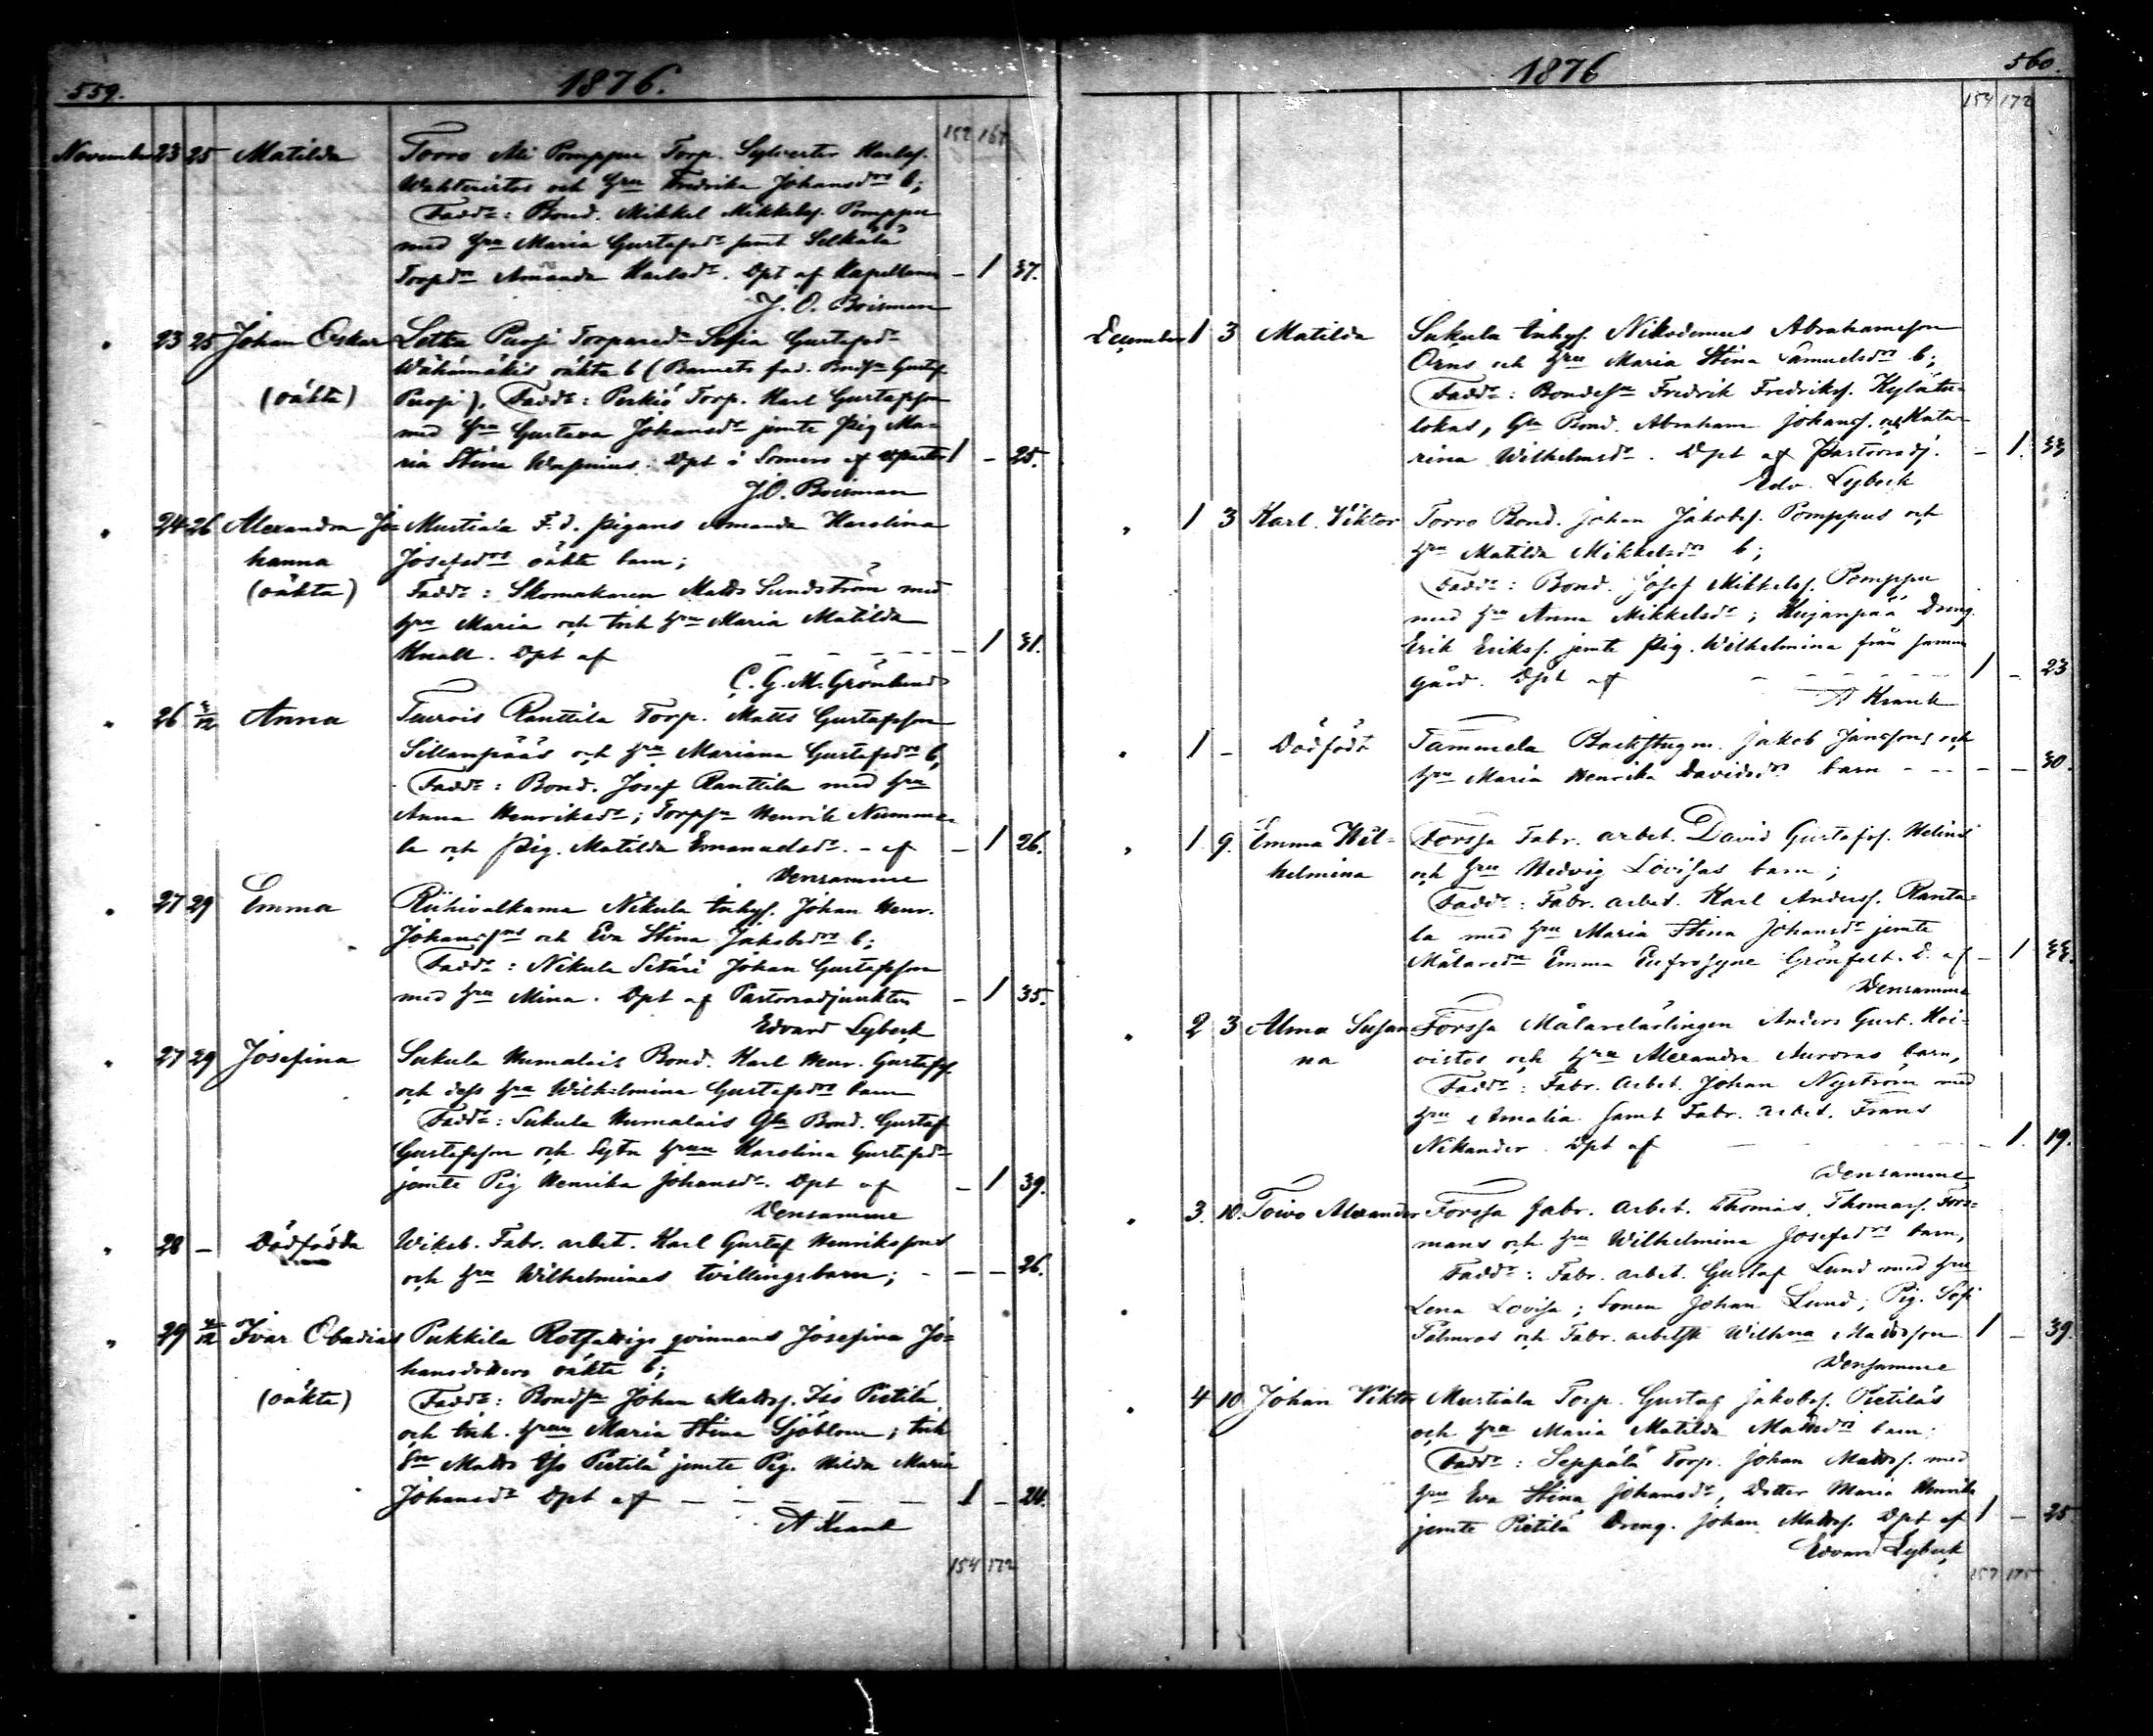 559. 1876.
152 167
November 23 25 Matilda Torro Ali Pomppu Torp. Sylvester Karlsf.
Wahteristos och hru Fredrika Johansdrs b;
Faddr: Bond. Mikkel Mikkelsf. Pomppu
med hru Maria Gustafsdr samt Selkälä
Torpdr Amanda Karlsdr. Dpt af Kapellanen – 1 37.
J. O. Boisman
" 23 25 Johan Oskar Letku Purosi Torparedr Sofia Gustafsdr
Wähämäkis oäkta b (Barnets fad. Bndsn Gustaf
(oäkta) Purosi). Faddr: Perkiö Torp. Karl Gustafsson
med hru Gustava Johansdr jemte pig Ma-
ria Stina Wapenius. Dpt i Somero af 1 – 25.
J.O. Boisman
" 24 26 Alexandra Jo- Mustiala F.d. pigans Amanda Karolina
hanna Josefsdrs oäkta barn;
(oäkta) Faddr: Skomakaren Matts Sundström med
hru Maria och Inh hru Maria Matilda
Knall. Dpt af – – – – – 1 31.
C. G. M. Grönlund
" 26 3/12 Anna Teuro is Ranttila Torp. Matts Gustafsson
Sillanpääs och hru Mariana Gustafsdrs b;
Faddr: Bond. Josef Ranttila med hru
Anna Henriksdr; Torpsn Henrik Numme-
la och Pig. Matilda Emanuelsdr. – af – 1 26.
Densamme
" 27 29 Emma Riihivalkama Nikula Inhys. Johan Henr.
Johanssns och Eva Stina Jakobsdrs b;
Faddr: Nikula Setäri Johan Gustafsson
med hru Mina. Dpt af Pastorsadjunkten – 1 35.
Edvard Lybeck
" 27 29 Josefina Sukula Humalais Bond. Karl Henr. Gustafsf.
och dess hru Wilhelmina Gustafsdrs barn
Faddr: Sukula Humalais Gla Bond. Gustaf
Gustafsson och Sytn hrun Karolina Gustafsdr
jemte Pig Henrika Johansdr. Dpt af – 1 39.
Densamme
" 28 – Dödfödda Wiksb. Fabr. arbet. Karl Gustaf Henrikssons
och hru Wilhelminas tvillingsbarn; – – – 26.
" 29 /12 Ivar Obadias Pukkila Rotfattigs qvinnans Josefina Jo-
hansdotters oäkta b;
(oäkta) Faddr: Bondsn Johan Mattsf. Iso Pietilä
och Inh. hrun Maria Stina Sjöblom; Inh
Sn Matts Iso Pietilä jemte Pig. Hilda Maria
Johansdr Dpt af – – – – 1 – 24.
A Krank
154 172
1876 560.
154 172
December 1 3 Matilda Sukula Inhys. Nikodemus Abrahamsson
Orns och hru Maria Stina Samuelsdrs b;
Faddr: Bondesn Fredrik Fredriksf. Kylätu-
lokas, Gla Bond. Abraham Johansf. och Kata-
rina Wilhelmsdr. Dpt af Pastorsadj. – 1. 33
Edv. Lybeck
" 1 3 Karl Viktor Torro Bond. Johan Jakobsf. Pomppus och
hru Matilda Mikkelsdrs b;
Faddr: Bond. Josef Mikkelsf. Pomppu
med hru Anna Mikkelsdr; Kujanpää Dreng.
Erik Eriksf. jemte Pig. Wilhelmina från samma
gård. Dpt af – – – – – 1 – 23
A Krank
" 1 – Dödfödt Tammela Backstugm. Jakob Janssons och
hru Maria Henrika Davidsdrs barn – – – – 30.
" 1 9. Emma Wil- Forssa Fabr. arbet. David Gustafsf. Helins
helmina och hru Hedvig Lovisas barn;
Faddr: Fabr. arbet. Karl Andersf. Ranta-
la med hru Maria Stina Johansdr jemte
Målaredr Emma Eufrosyne Grönfelt. D. af – 1 33.
Densamme
" 2 3 Alma Susan- Forssa Målarelärlingen Anders Gust. Koi-
na vistos och hru Alexandra Auroras barn,
Faddr: Fabr. Arbet. Johan Nyström med
hru Amalia samt Fabr. arbet. Frans
Nikander. Dpt af – – – – 1. 19.
Densamme
" 3. 10. Toivo Alexander Forssa fabr. arbet. Thomas Thomasf. Fors-
mans och hru Wilhelmina Josefsdrs barn,
Faddr: Fabr. arbet. Gustaf Lund med hru
Lena Lovisa; Sonen Johan Lund; Pig. Sofi
Palmros och Fabr. arbetsk Wilhna Mattsson 1 – 39.
Densamme
" 4 10 Johan Viktor Mustiala Torp. Gustaf Jakobsf. Pietiläs
och hru Maria Matilda Mattsdrs barn;
Faddr: Seppälä Torp. Johan Mattsf. med
hru Eva Stina Johansdr, Dotter Maria Henrika
jemte Pietilä Dreng. Johan Mattsf. Dpt af 1 – 25
Edvard Lybeck
157 175